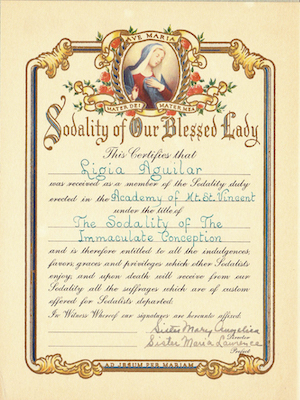 AVE MARIA
MATER DEI MATER MEA
Sodality of Our Blessed Lady
This Certifies that
Ligia Aguilar
was received as a member of the Sodality duly
erected in the Academy of Mt. St. Vincent
under the title of
The Sodality of The
Immaculate Conception
and is therefore entitled to all the indulgences,
favors, graces and privileges which other Sodalists
enjoy; and upon death will receive from our
Sodality all the suffrages which are of custom
offered for Sodalists departed.
In Witness Whereof our signatures are hereunto affixed.
Sister Mary Angelica
Director
Sister Maria Lawrence
Prefect
AD JESUM PER MARIAM